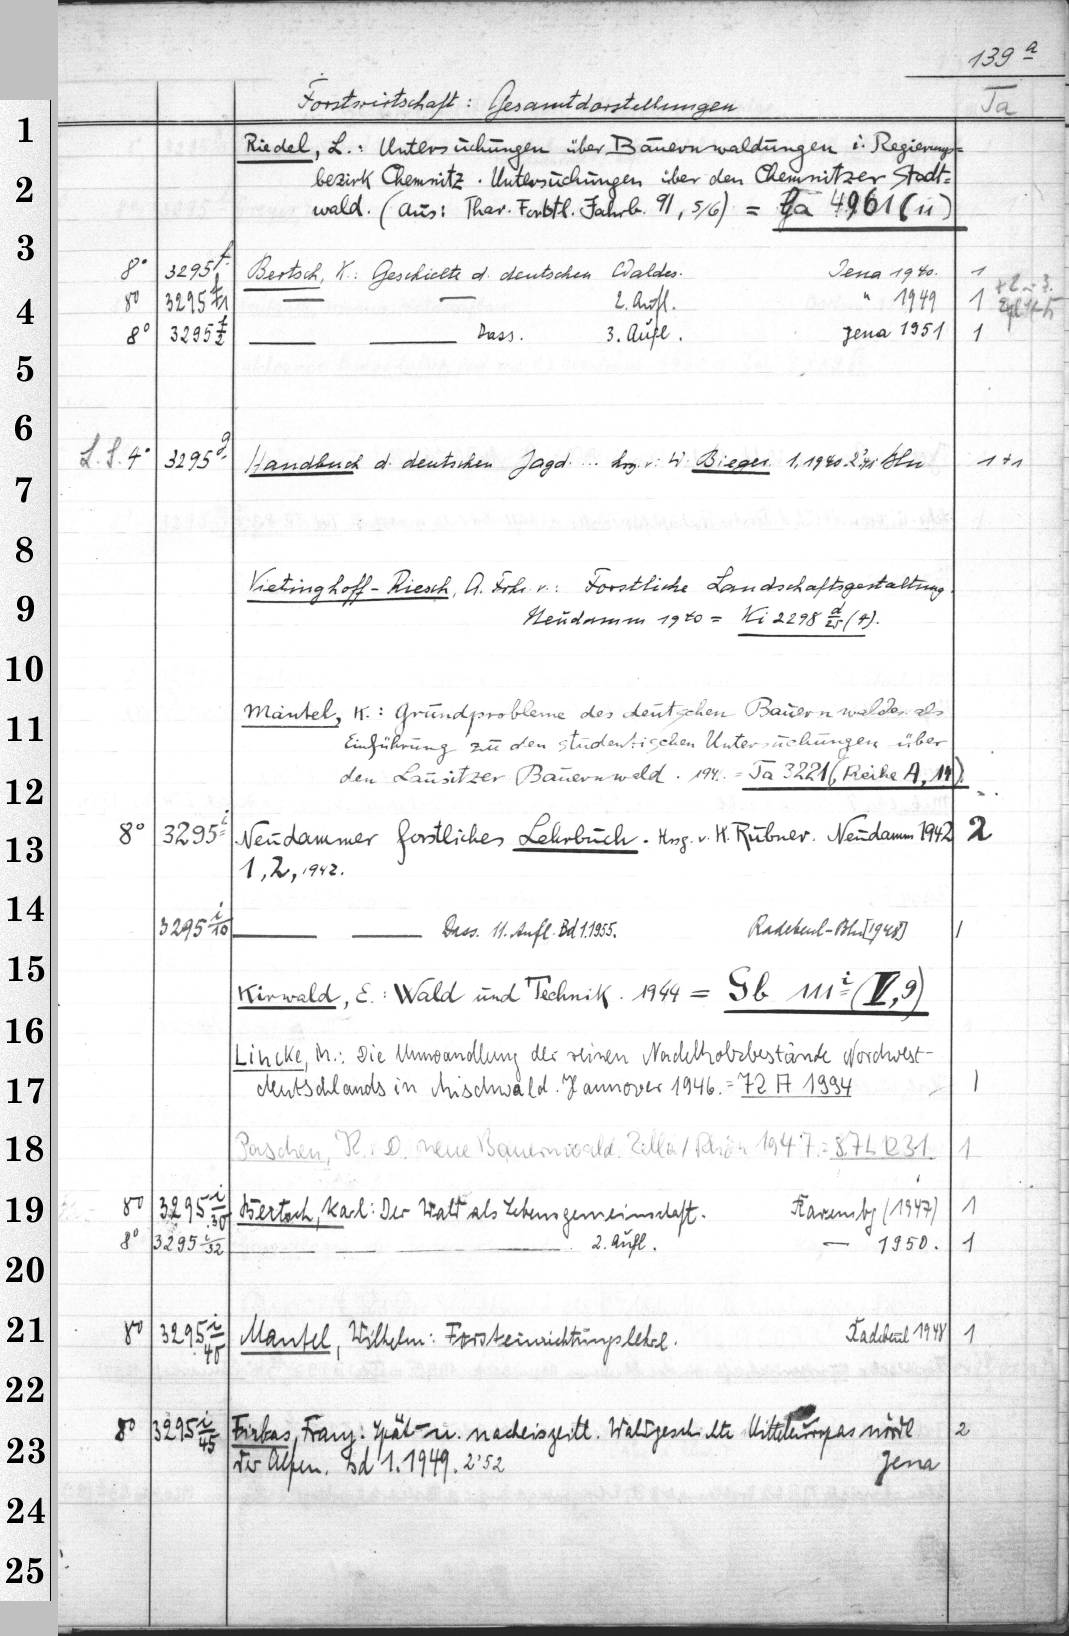 139 a
Forstwirtschaft : Gesamtdarstellungen Ta
1 Riedel, L. : Untersuchungen über Bauernwaldungen i. Regierungs=
2 bezirk Chemnitz . Untersuchungen über den Chemnitzer Stadt=
wald. (Aus: Thar. Forstl. Jahrb. 91, 5/6) = Ga 4961 (u)
3
8° 3295 f. Bertsch, K.: Geschichte d. deutschen Waldes. Jena 1940. 1
4 8° 3295 f/1 — — 2. Aufl. " 1949 1
8° 3295 f/2 — — Dass. 3. Aufl. Jena 1951 1
5
6
L.S. 4° 3295 g. Handbuch d. deutschen Jagd ... hrg. v. W. Bieger. 1. 1940. 2. 1941 Bln 1+1
7
8
Vietinghoff-Riesch, A. Frhr. v.: Forstliche Landschaftsgestaltung.
9 Neudamm 1940 = Ki 2298 d/25 (4).
10
11 Mantel, K. : Grundprobleme des deutschen Bauernwaldes als
Einführung zu den studentischen Untersuchungen über
12 den Lausitzer Bauernwald . 194. = Ta 3221 (Reihe A, 14).
13 8° 3295 i Neudammer forstliches Lehrbuch . Hrsg. v. K. Rubner. Neudamm 1942 2
1, 2, 1942.
14 3295 i/10 — — Dass. 11. Aufl. Bd 1.1955. Radebeul-Bln [1948] 1
15
Kirwald, E. : Wald und Technik . 1944 = Sb 111 i (V, 9)
16 Lincke, M.: Die Umwandlung der reinen Nadelholzbestände Nordwest-
17 deutschlands in Mischwald. Hannover 1946. = 72 A 1994 1
18 Paschen, K.: D. neue Bauernwald. Zella / Rhön 1947. = 87 L 1231 1
19 8° 3295 i/30 Bertsch, Karl: Der Wald als Lebensgemeinschaft. Ravensbg (1947) 1
8° 3295 i/32 — — — 2. Aufl. — 1950. 1
20
21 8° 3295 i/40 Mantel, Wilhelm: Forsteinrichtungslehre. Radebeul 1948 1
22
8° 3295 i/45 Firbas, Franz: Spät- u. nacheiszeitl. Waldgeschichte Mitteleuropas nördl 2
23 der Alpen. Bd 1. 1949. 2. 52 Jena
24
25